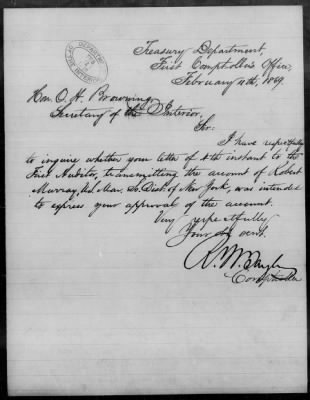 Treasury Department,
First Comptroller's Office,
February 11th, 1869.
Hon. O. H. Browning,
Secretary of the Interior,
Sir:
I have respectfully
to inquire whether your letter of 8th instant to the
First Auditor, transmitting the account of Robert
Murray, U.S. Mar. So. Dist. of New York, was intended
to express your approval of the account.
Very respectfully
Your Ob. servt.
R. W. Tayler
Comptroller